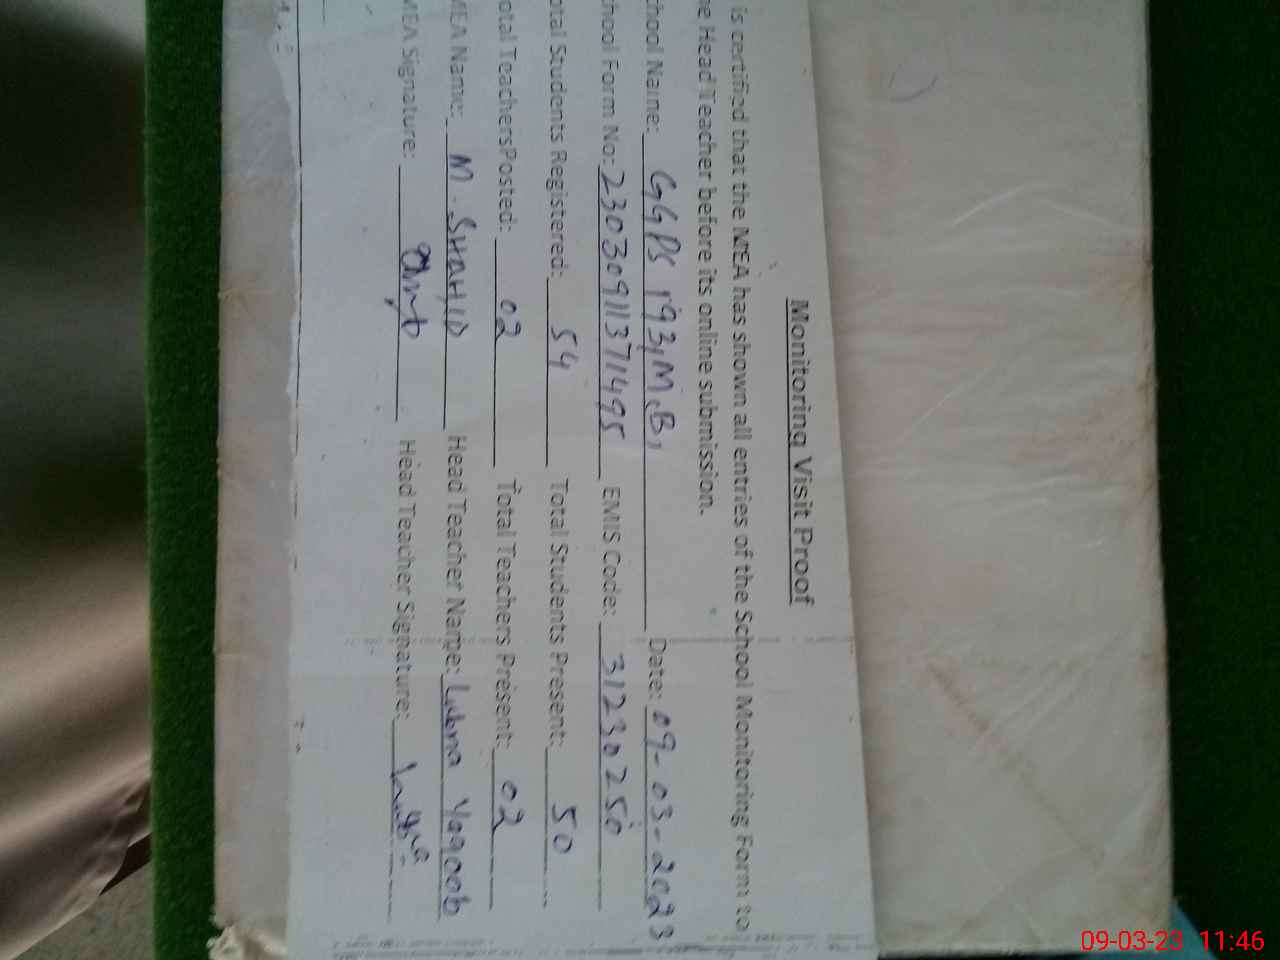 Monitoring Visit Proof
is certified that the MEA has shown all entries of the School Monitoring Form to
he Head Teacher before its online submission.
chool Name: GGPS 193, M.B, Date: 09-03-2023
hool Form No: 23030911371495 EMIS Code: 31230250
otal Students Registered: 54 Total Students Present: 50
otal TeachersPosted: 02 Total Teachers Present: 02
MEA Name: M. SHAHID Head Teacher Name: Lubna Yaqoob
MEA Signature: Head Teacher Signature:
09-03-23 11:46